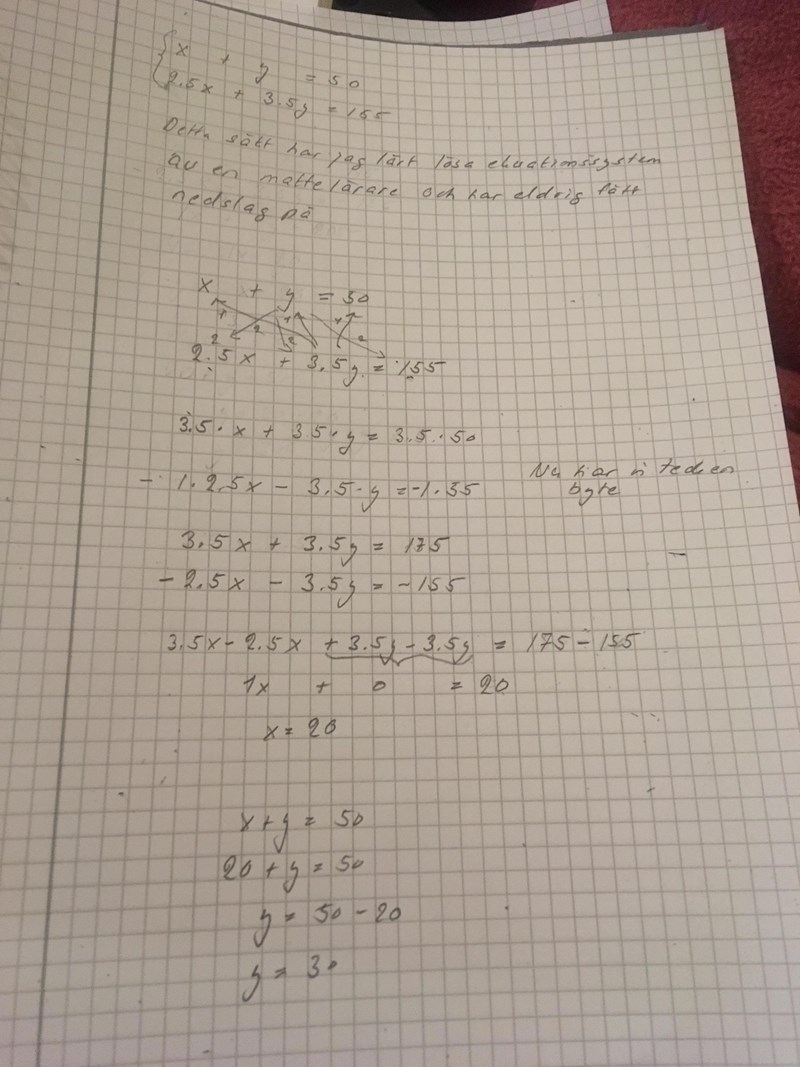 x + y = 50
2.5x + 3.5y = 155
Detta sätt har jag lärt lösa ekvationssystem
av en mattelärare och har aldrig fått
nedslag på
x + y = 50
1 2 1 2 1 2
2.5x + 3.5y = 155
3.5 · x + 3.5 · y = 3.5 · 50
- 1 · 2.5x - 3.5 · y = -1 · 35
Nu har vi tecken
byte
3.5x + 3.5y = 175
- 2.5x - 3.5y = - 155
3.5x - 2.5x + 3.5y - 3.5y = 175 - 155
1x + 0 = 20
x = 20
x + y = 50
20 + y = 50
y = 50 - 20
y = 30